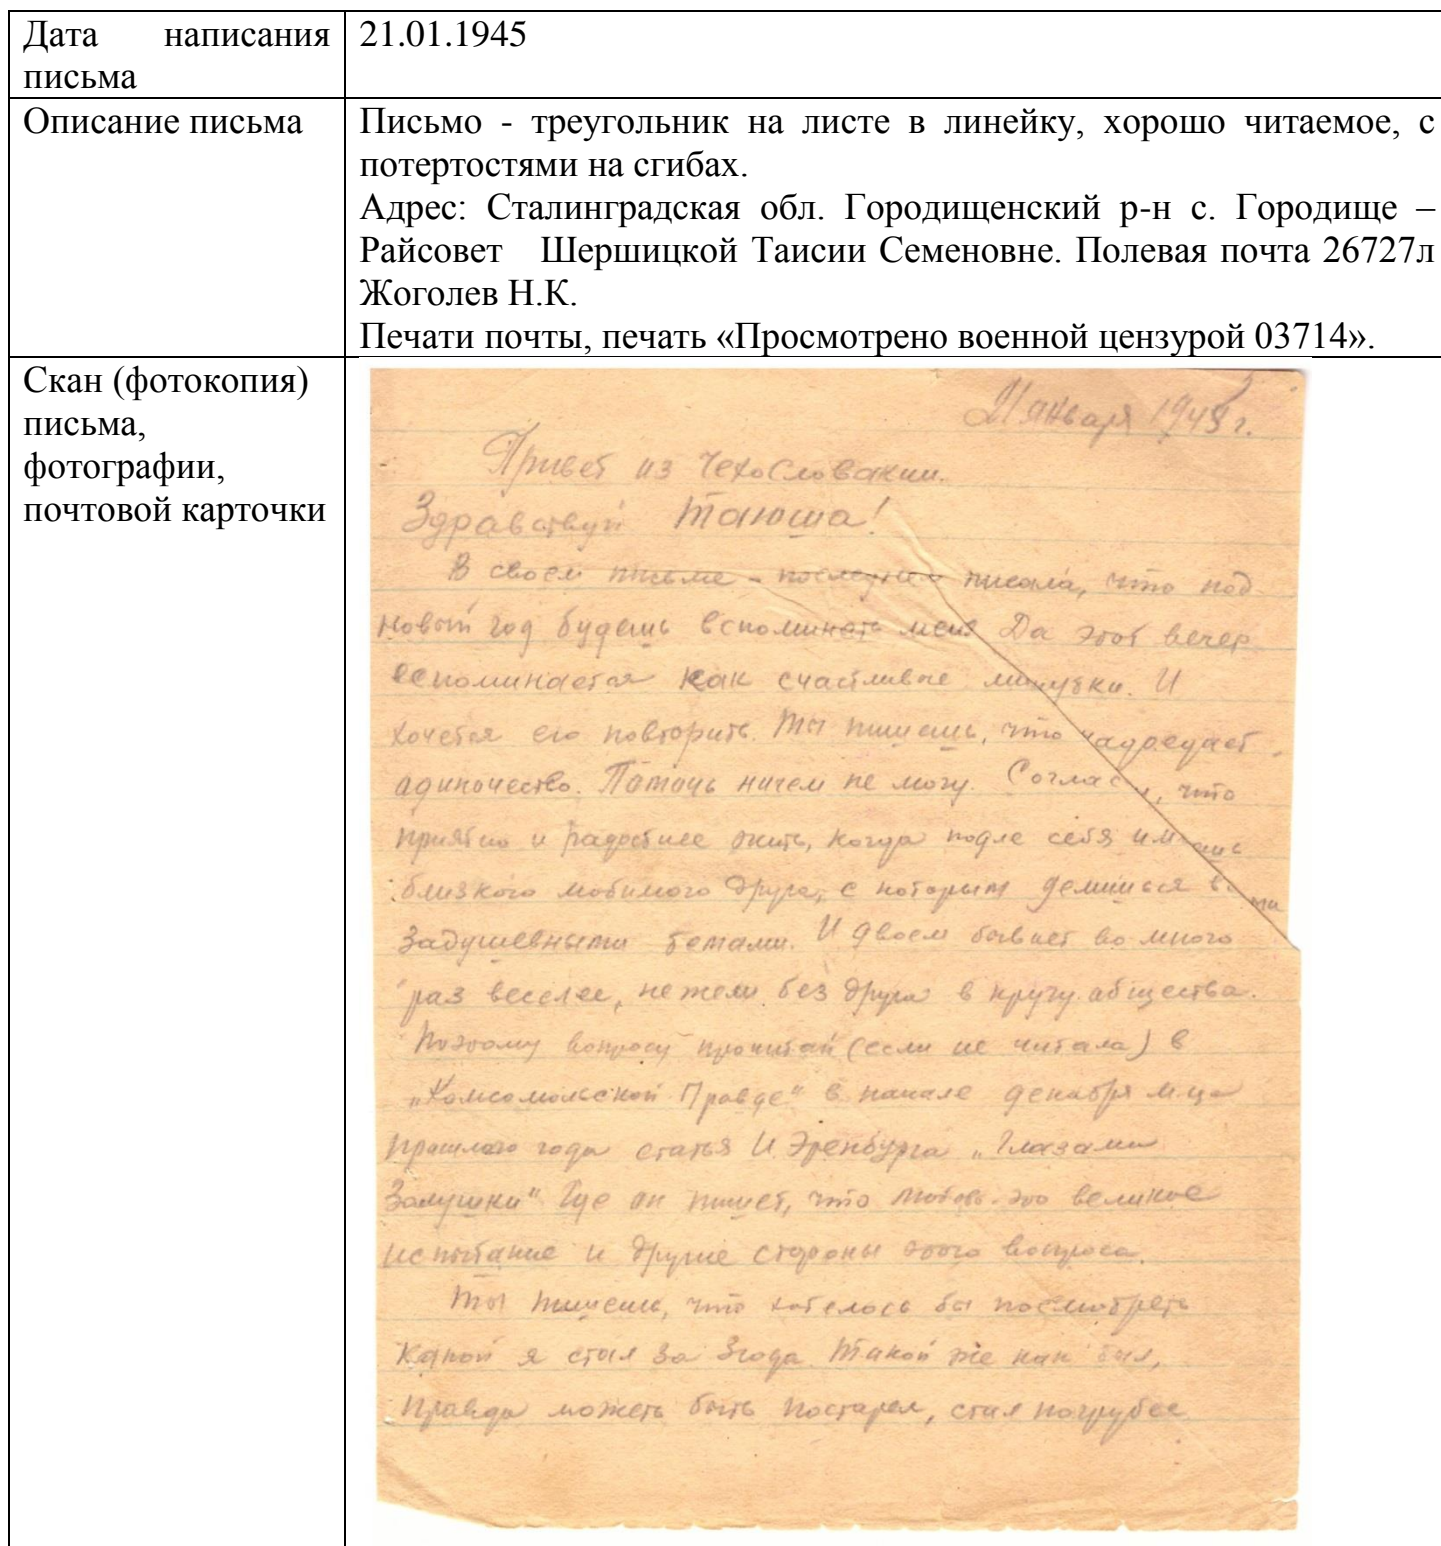 Дата написания
письма
21.01.1945
Описание письма
Письмо - треугольник на листе в линейку, хорошо читаемое, с
потертостями на сгибах.
Адрес: Сталинградская обл. Городищенский р-н с. Городище –
Райсовет Шершицкой Таисии Семеновне. Полевая почта 26727л
Жоголев Н.К.
Печати почты, печать «Просмотрено военной цензурой 03714».
Скан (фотокопия)
письма,
фотографии,
почтовой карточки
21 января 1945 г.
Привет из Чехословакии.
Здравствуй Таюша!
В своем письме - последнем писала, что под
новый год будешь вспоминать меня Да этот вечер
вспоминается как счастливые минутки. И
хочется его повторить. Ты пишешь, что надоедает
адиночество. Памочь ничем не могу. Согласен, что
приятно и радостнее жить, когда подле себя имеешь
близкого любимого друга, с которым делишься
задушевными темами. И двоем бывает во много
раз веселее, нежели без друга в кругу общества.
Поэтому вопросу прочитай (если не читала) в
„Комсомольской Правде" в начале декабря м-ца
прошлого года статья И. Эренбурга „Глазами
Золушки" Где он пишет, что любовь-это великое
испытание и другие стороны этого вопроса.
Ты пишешь, что хотелось бы посмотреть
какой я стал за 3 года. Такой же как был,
правда можеть быть постарел, стал погрубее